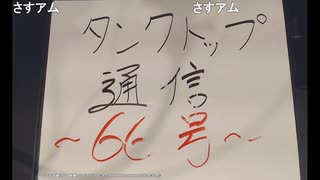 さすアム さすアム
タンクトップ
通信
～66号～